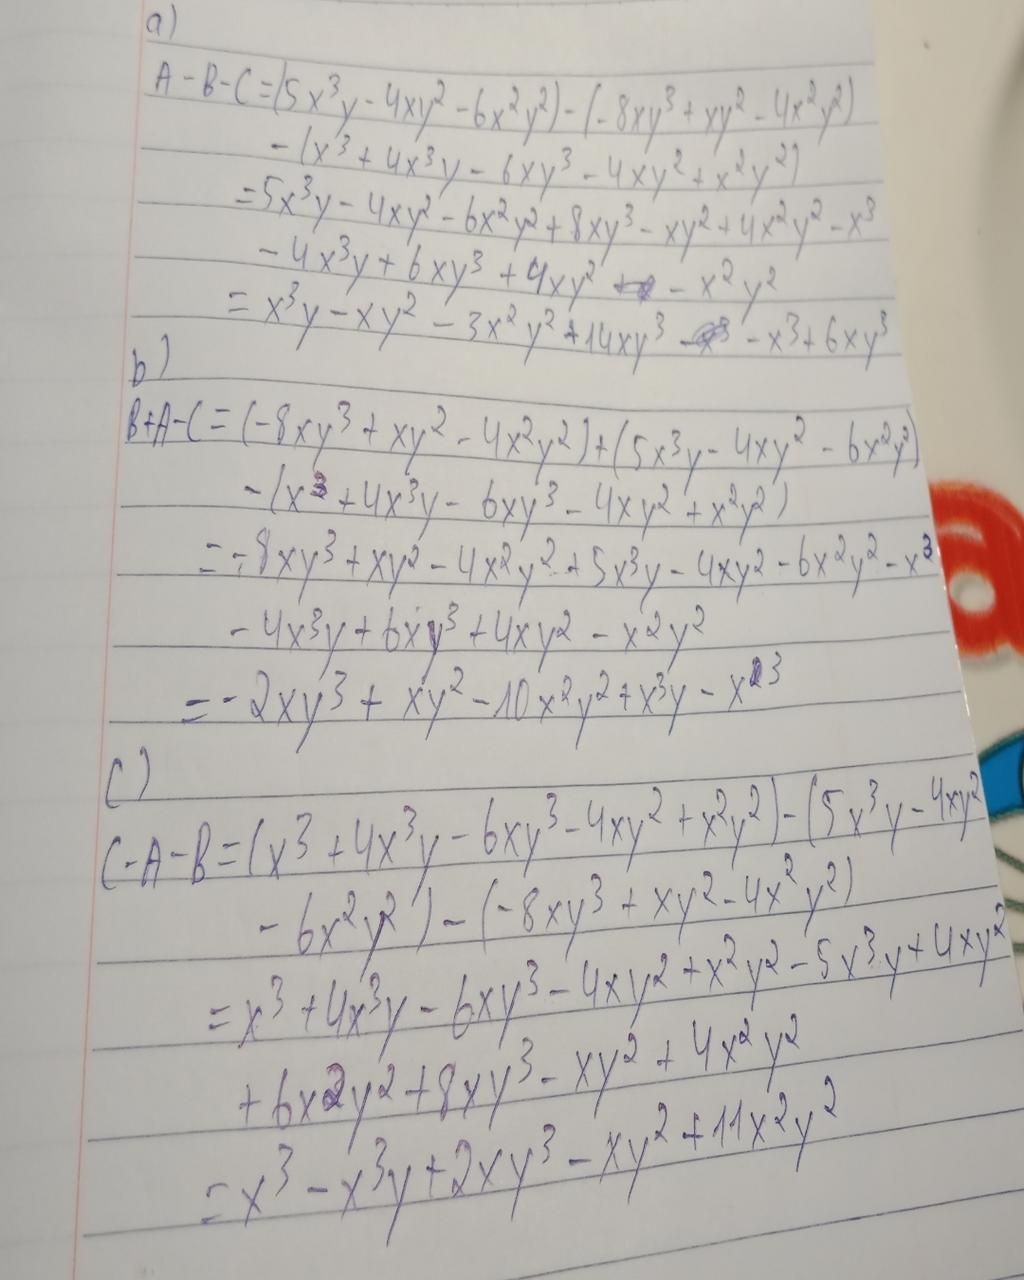 a)
A - B - C = (5x³y - 4xy² - 6x²y²) - (-8xy³ + xy² - 4x²y²)
- (x³ + 4x³y - 6xy³ - 4xy² + x²y²)
= 5x³y - 4xy² - 6x²y² + 8xy³ - xy² + 4x²y² - x³
- 4x³y + 6xy³ + 4xy² - x²y²
= x³y - xy² - 3x²y² + 14xy³ - x³ + 6xy³
b)
B + A - C = (-8xy³ + xy² - 4x²y²) + (5x³y - 4xy² - 6x²y²)
- (x³ + 4x³y - 6xy³ - 4xy² + x²y²)
= -8xy³ + xy² - 4x²y² + 5x³y - 4xy² - 6x²y² - x³
- 4x³y + 6xy³ + 4xy² - x²y²
= -2xy³ + xy² - 10x²y² + x³y - x³
c)
C - A - B = (x³ + 4x³y - 6xy³ - 4xy² + x²y²) - (5x³y - 4xy²
- 6x²y²) - (-8xy³ + xy² - 4x²y²)
= x³ + 4x³y - 6xy³ - 4xy² + x²y² - 5x³y + 4xy²
+ 6x²y² + 8xy³ - xy² + 4x²y²
= x³ - x³y + 2xy³ - xy² + 11x²y²